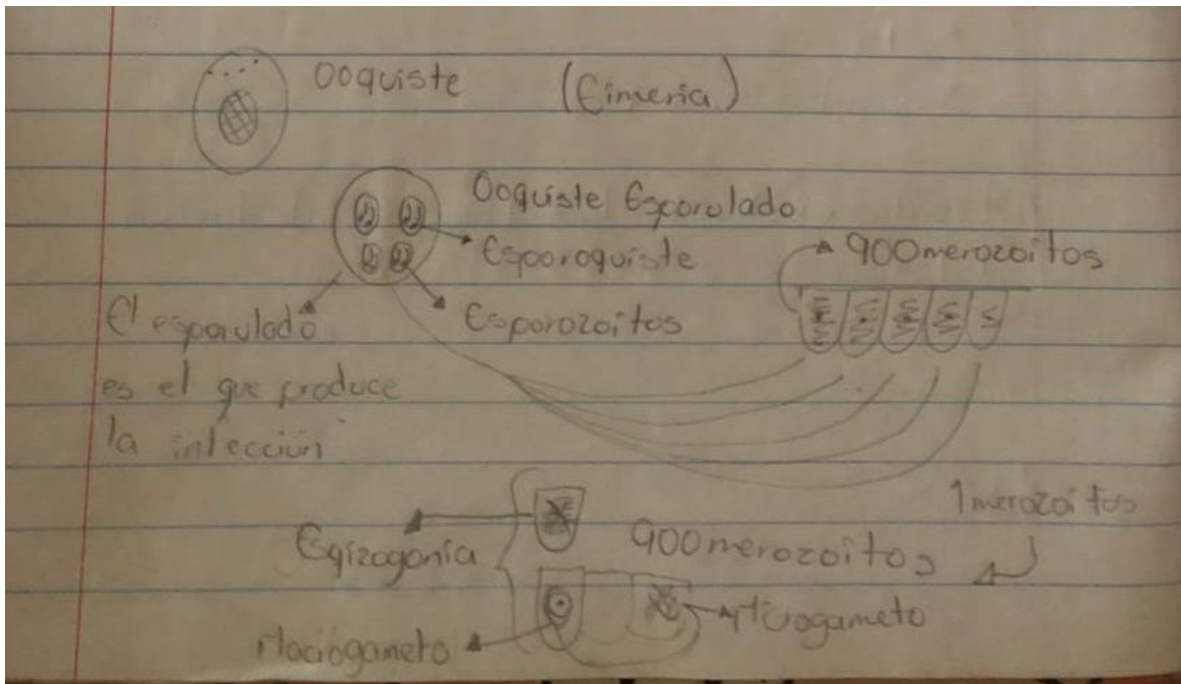 Ooquiste (Eimeria)
Ooquiste Esporulado
Esporoquiste
900 merozoitos
Esporozoitos
El esporulado
es el que produce
la infección
1 merozoitos
Esqizogonía
900 merozoitos
Microgameto
Macrogameto